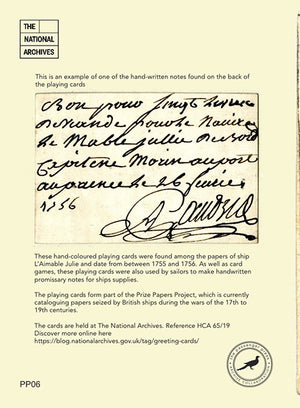 THE
NATIONAL
ARCHIVES
This is an example of one of the hand-written notes found on the back of
the playing cards
Bon pour vingt livres
de viande pour le Navire
Capitene Morin au port
1756
These hand-coloured playing cards were found among the papers of ship
L'Aimable Julie and date from between 1755 and 1756. As well as card
games, these playing cards were also used by sailors to make handwritten
promissary notes for ships supplies.
The playing cards form part of the Prize Papers Project, which is currently
cataloguing papers seized by British ships during the wars of the 17th to
19th centuries.
The cards are held at The National Archives. Reference HCA 65/19
Discover more online here
https://blog.nationalarchives.gov.uk/tag/greeting-cards/
PP06